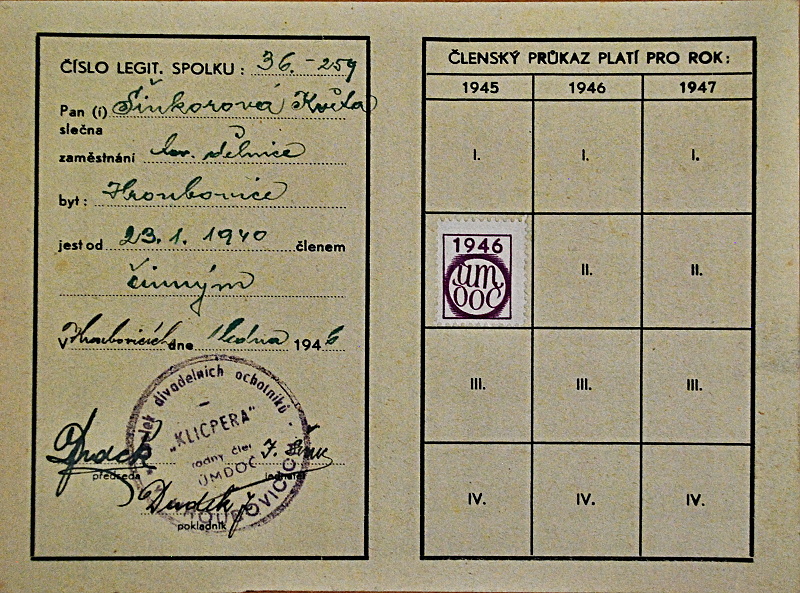 ČÍSLO LEGIT. SPOLKU : 36.-259
Pan (í) Šinkorová Květa
slečna
zaměstnání tov. dělnice
byt: Hroubovice
jest od 23.1.1940 členem
činným
V Hroubovicích dne ledna 1946
spolek divadelních ochotníků
"KLICPERA"
řádný člen
ÚMDOČ
HROUBOVICÍCH
Dudek
předseda jednatel
Dudek
pokladník
ČLENSKÝ PRŮKAZ PLATÍ PRO ROK:
1945 1946 1947
I. I. I.
1946
ÚM
DOČ
II. II.
III. III. III.
IV. IV. IV.